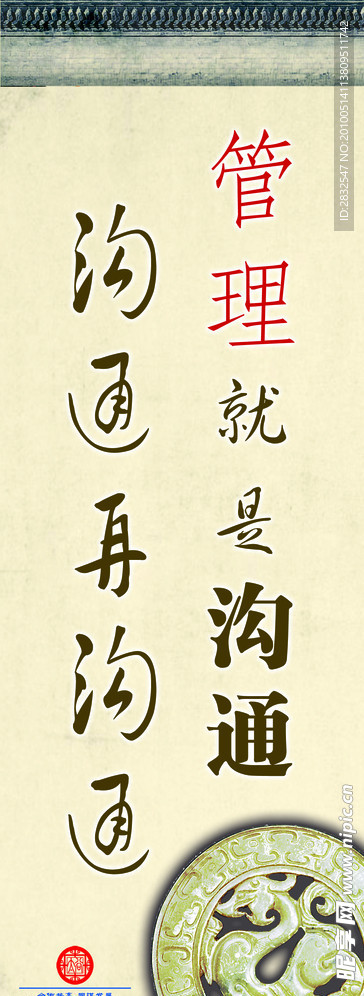 管理就是沟通
沟通再沟通
ID:2832547 NO:20100514113809511742
昵享网 www.nipic.cn